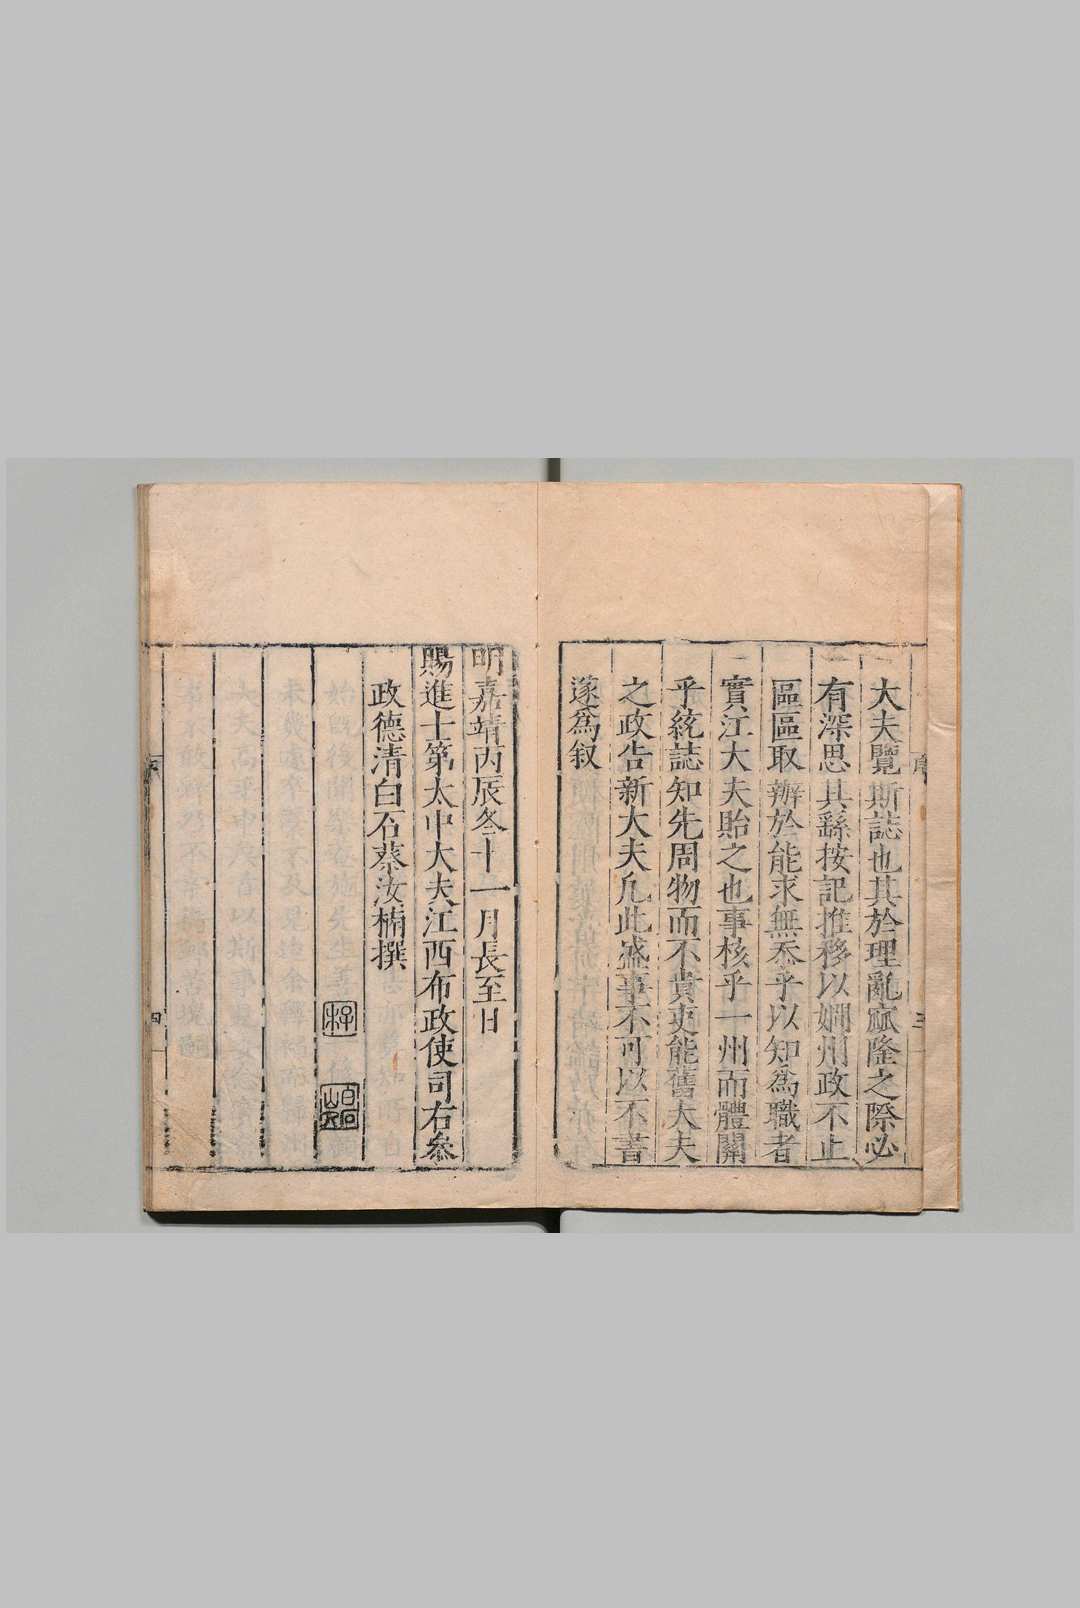 大夫覽斯誌也其於理亂窳隆之際必
有深思其繇按記推移以嫺州政不止
區區取辦於能求無忝乎以知為職者
實江大夫貽之也事核乎一州而體關
乎統誌知先周物而不貴吏能舊大夫
之政告新大夫凡此盛事不可以不書
遂為叙
明嘉靖丙辰冬十一月長至日
賜進士第太中大夫江西布政使司右叅
政德清白石蔡汝楠撰
白石
四